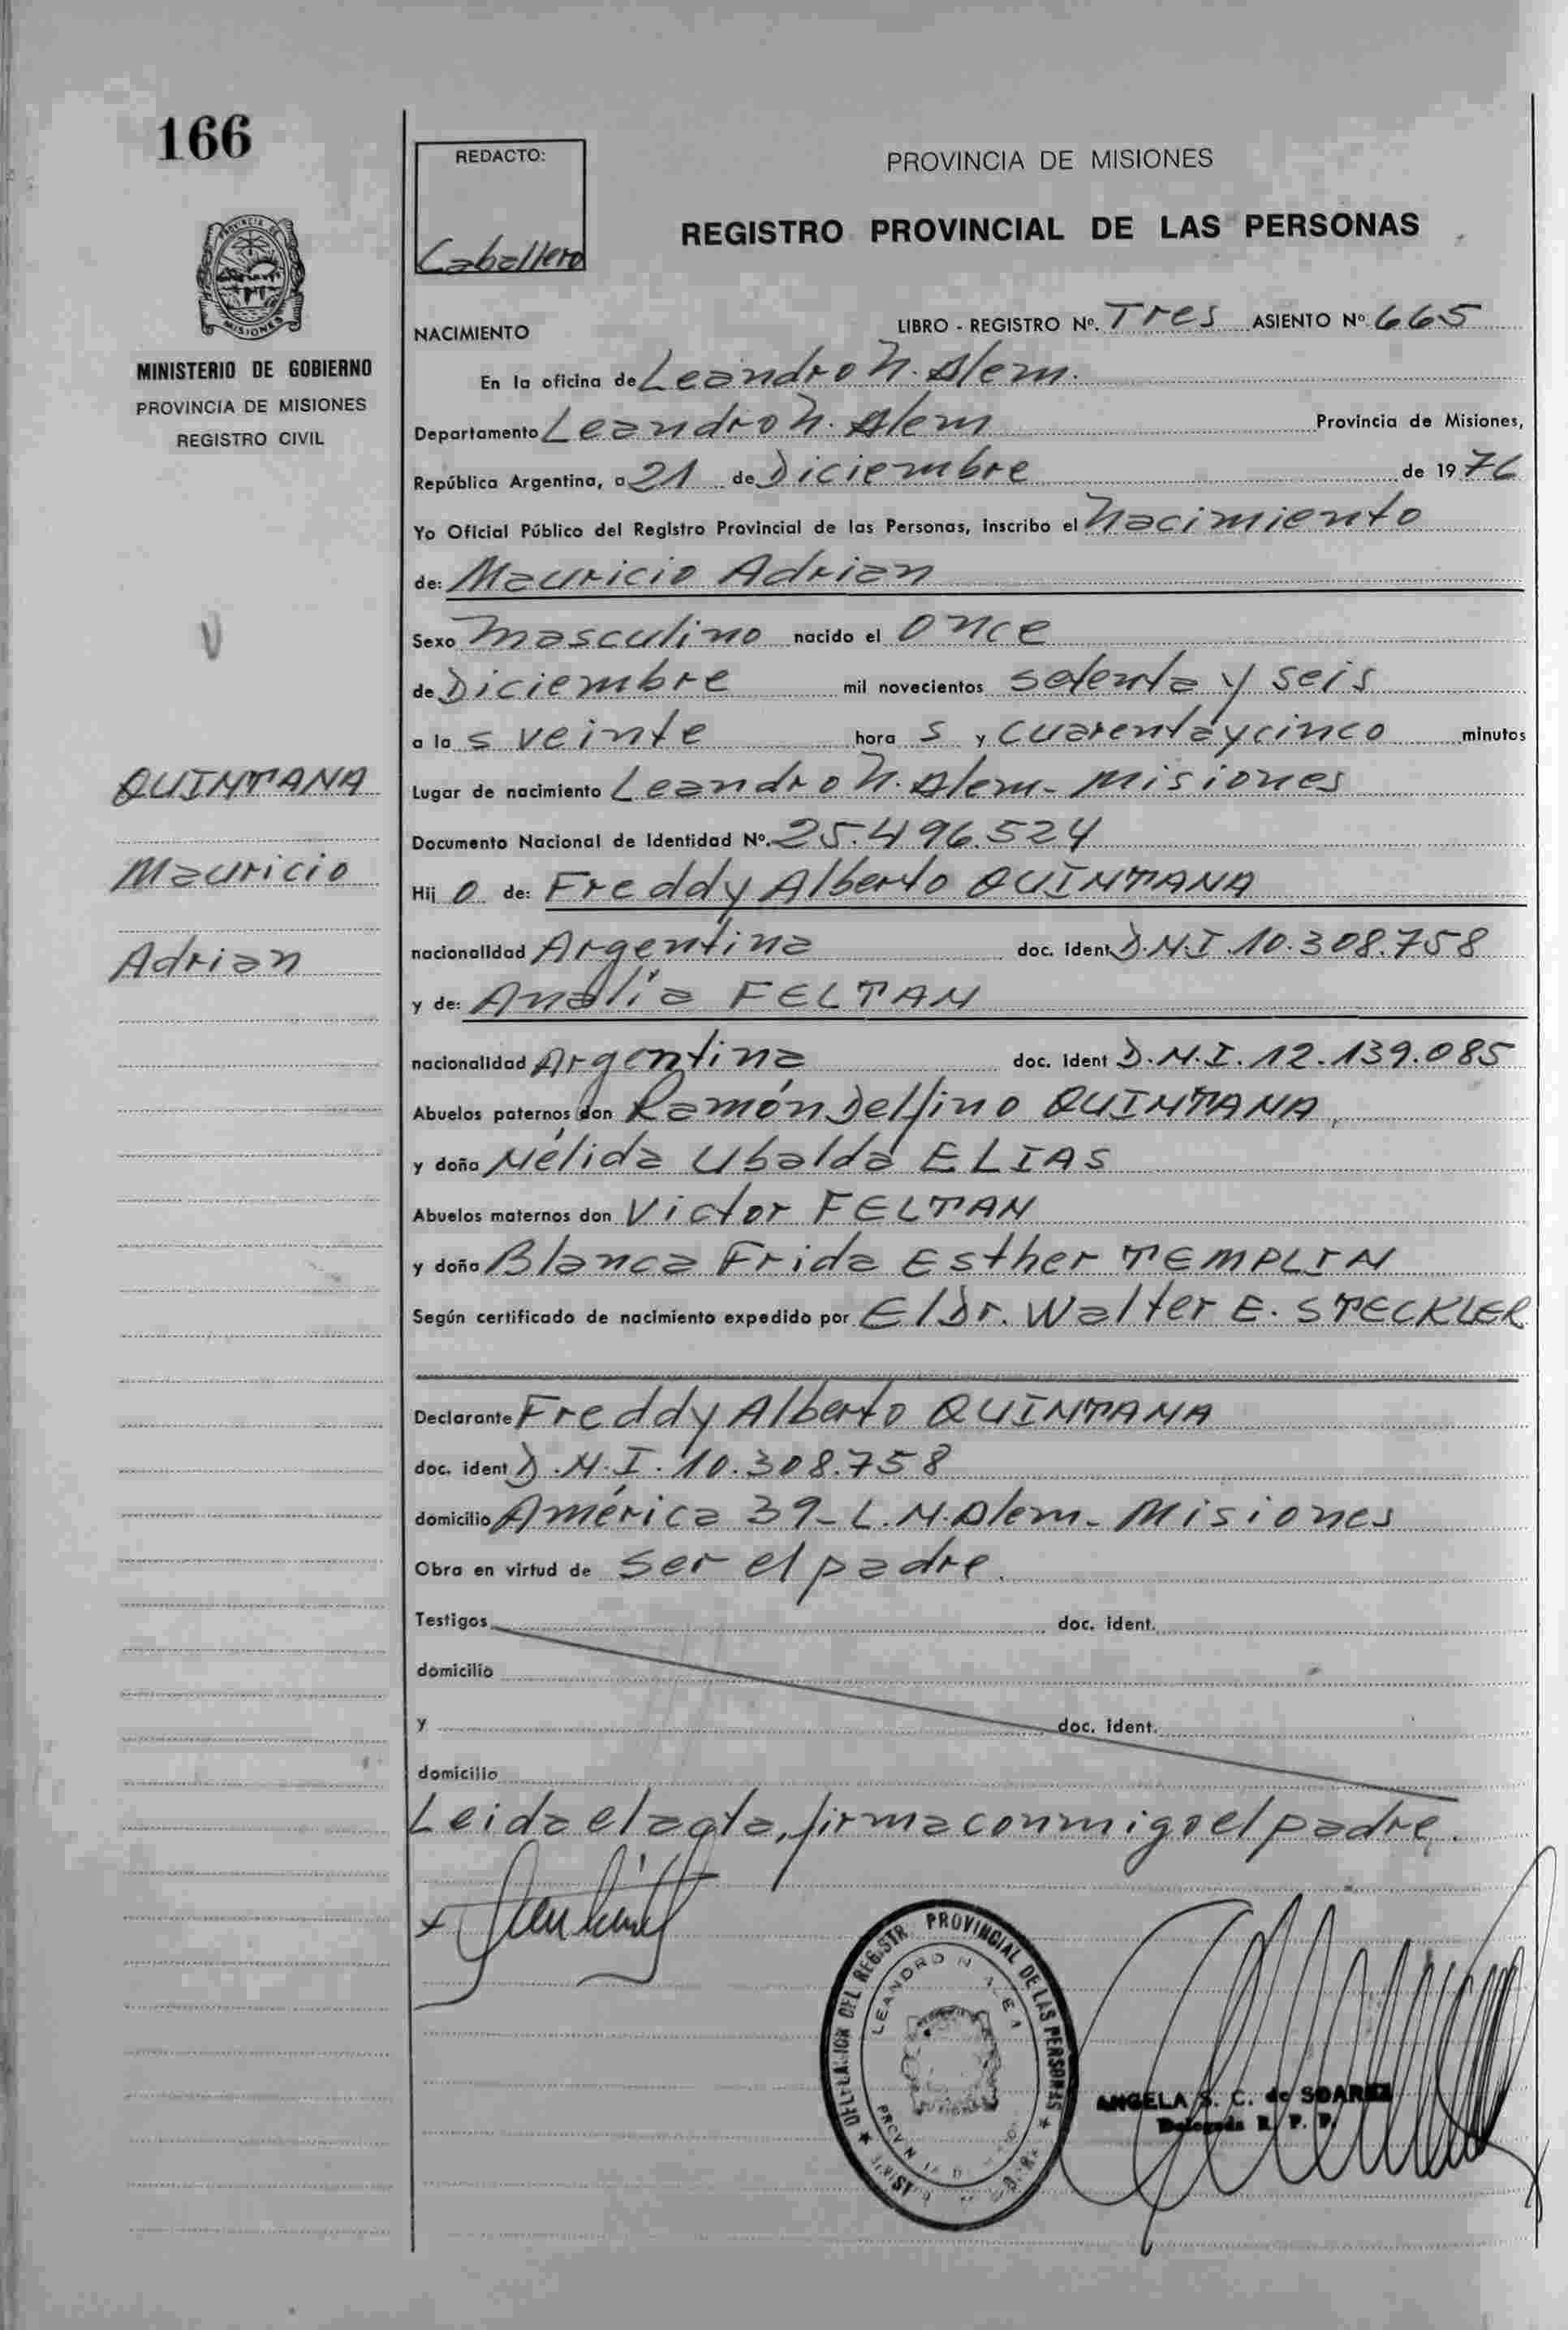 166
REDACTO:
Caballero
PROVINCIA DE MISIONES
REGISTRO PROVINCIAL DE LAS PERSONAS
PROVINCIA DE
MISIONES
MINISTERIO DE GOBIERNO
PROVINCIA DE MISIONES
REGISTRO CIVIL
QUINTANA
Mauricio
Adrian
NACIMIENTO LIBRO - REGISTRO Nº. Tres ASIENTO Nº 665
En la oficina de Leandro N. Alem.
Departamento Leandro N. Alem Provincia de Misiones,
República Argentina, a 21 de Diciembre de 1976
Yo Oficial Público del Registro Provincial de las Personas, inscribo el Nacimiento
de: Mauricio Adrian
Sexo Masculino nacido el Once
de Diciembre mil novecientos setenta y seis
a la s veinte hora s y cuarentaycinco minutos
Lugar de nacimiento Leandro N. Alem - Misiones
Documento Nacional de Identidad Nº. 25.496.524
Hij o de: Freddy Alberto QUINTANA
nacionalidad Argentina doc. ident D.N.I. 10.308.758
y de: Analía FELTAN
nacionalidad Argentina doc. ident D.N.I. 12.139.085
Abuelos paternos don Ramón Delfino QUINTANA,
y doña Nélida Ubalda ELIAS
Abuelos maternos don Victor FELTAN
y doña Blanca Frida Esther TEMPLIN
Según certificado de nacimiento expedido por El Dr. Walter E. STECKLER
Declarante Freddy Alberto QUINTANA
doc. ident D.N.I. 10.308.758
domicilio América 39 - L.N. Alem - Misiones
Obra en virtud de ser el padre.
Testigos doc. ident.
domicilio
y doc. ident.
domicilio
Leida el acta, firma conmigo el padre.
DELEGACION DEL REGISTR. PROVINCIAL DE LAS PERSONAS
LEANDRO N. ALEM
ANGELA S. C. de SOAREZ
Delegada R. P. P.